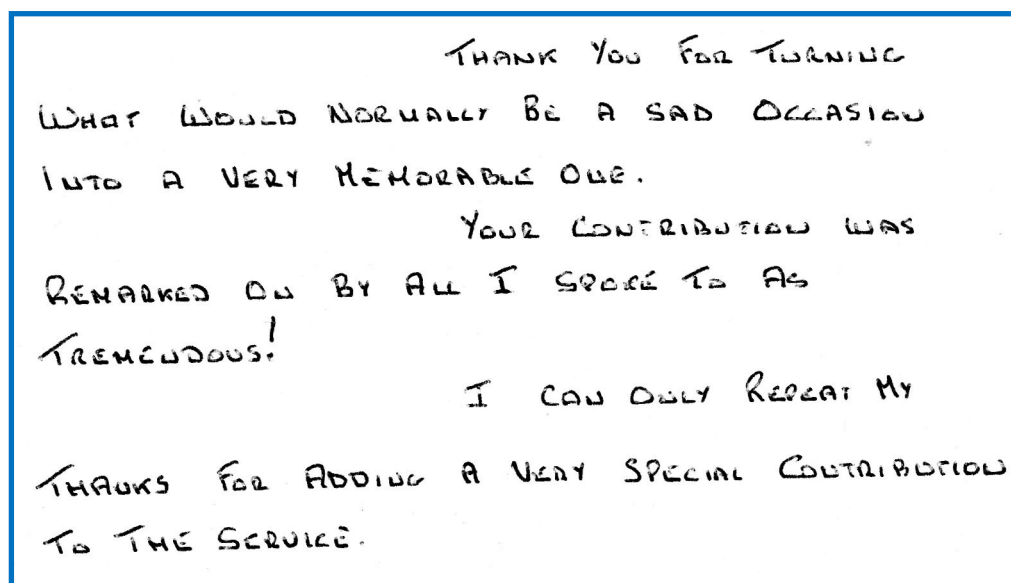 THANK YOU FOR TURNING
WHAT WOULD NORMALLY BE A SAD OCCASION
INTO A VERY MEMORABLE ONE.
YOUR CONTRIBUTION WAS
REMARKED ON BY ALL I SPOKE TO AS
TREMENDOUS!
I CAN ONLY REPEAT MY
THANKS FOR ADDING A VERY SPECIAL CONTRIBUTION
TO THE SERVICE.